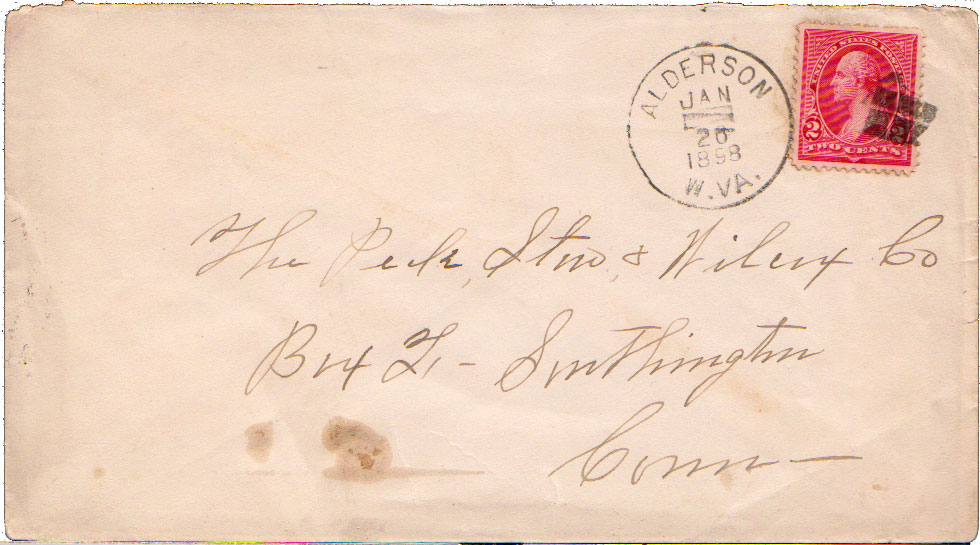 ALDERSON
JAN
26
1898
W.VA.
UNITED STATES POSTAGE
2 2
TWO CENTS
The Peck, Stow, & Wilcox Co
Box L - Southington
Conn -